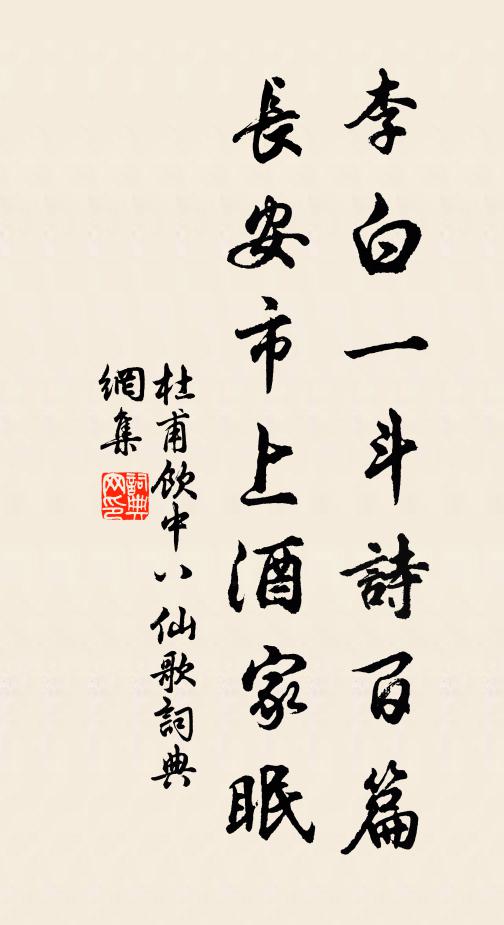 李白一斗詩百篇
長安市上酒家眠
杜甫飲中八仙歌詞典
網集
詞典
网印